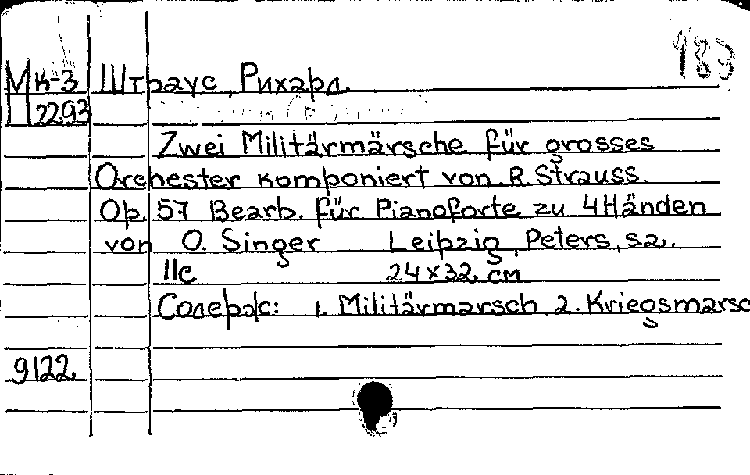 183
МК-3 Штраус, Рихард.
2293
Zwei Militärmärsche für grosses
Orchester komponiert von R. Strauss.
Op. 57 Bearb. für Pianoforte zu 4 Händen
von O. Singer Leipzig, Peters, s.a.
11с 24x32 см
Содерж: 1. Militärmarsch 2. Kriegsmarsc
9122